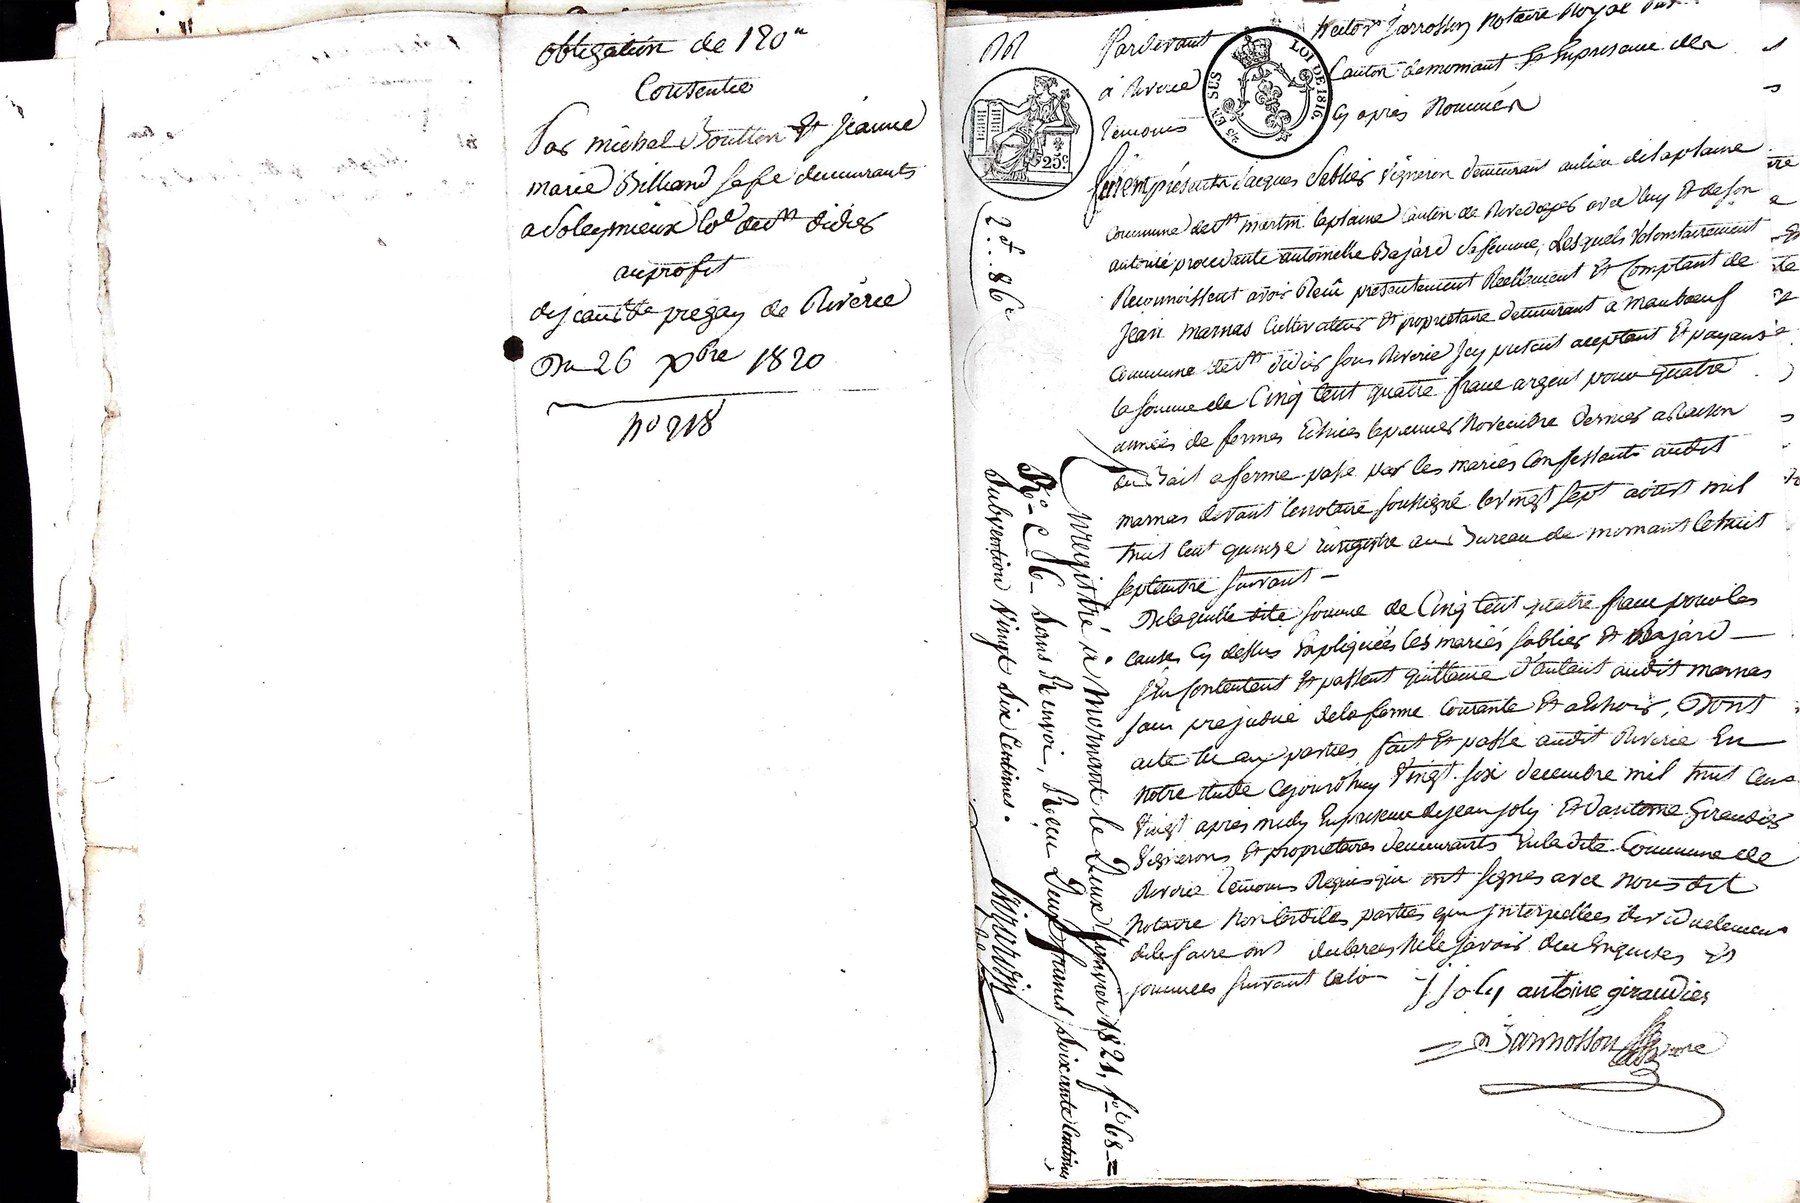 obligation de 120ᶠʳ
Consentie
Par michel Boutton Et jeanne
marie Billiand sa fe demeurants
a Soleymieux Cⁿᵉ de Sᵗ didier
au profit
de jean Bᵗᵉ pregay de Riverie
Du 26 xbre 1820
nº 218
Pardevant hector Jarrosson Notaire Royal
à Riverie Canton de mornant Et En presence des
témoins Cy après Nommés
EN SUS
LOI DE 1816.
25ᶜ
2ᶠ..86ᶜ
furent présents Jacques Sablier Vigneron demeurant au lieu de la plaine
Commune de Sᵗ martin la plaine Canton de Rivedegier avec luy Et de son
autorité procedante antoinette Bajard sa femme, Lesquels Volontairement
Reconnoissent avoir Reçu presentement Reellement Et Comptant de
Jean marnas Cultivateur Et proprietaire demeurant a maubœuf
Commune de Sᵗ didier sous Riverie Icy present aceptant Et payant
la somme de Cinq Cent quatre franc argent pour quatre
années de fermes Echues le premier Novembre dernier a Raison
du Bail a ferme passé par les mariés Confessants audit
marnas devant le notaire soussigné le vingt sept aout mil
huit Cent quinze Enregistré au Bureau de mornant le huit
septembre suivant
De laquelle dite somme de Cinq Cent quatre franc pour les
causes Cy dessus Expliquées les mariés Sablier Et Bajard
s'En Contentent Et passent quittance d'autant audit marnas
sans prejudice de la ferme Courante Et a Echoir, Dont
acte lu aux parties fait Et passé audit Riverie En
notre Etude cejourd'huy Vingt six decembre mil huit Cent
Vingt après midy En presence de jean joly Et d'antoine Giraudier
Vignerons Et proprietaires demeurants En la dite Commune de
Riverie témoins Requis qui ont signés avec nous dit
Notaire Non lesdites parties qui Interpellées individuelement
de le faire ont declarées Ne le savoir de ce Enquises Et
sommées suivant la loi
J joly antoine giraudier
Jarrosson
Enregistré à Mornant le Deux Janvier 1821, fº 68
Rº C 8ᵉ Sans Renvoi, Reçu Deux francs Soixante Centimes
Subvention Vingt Six Centimes.